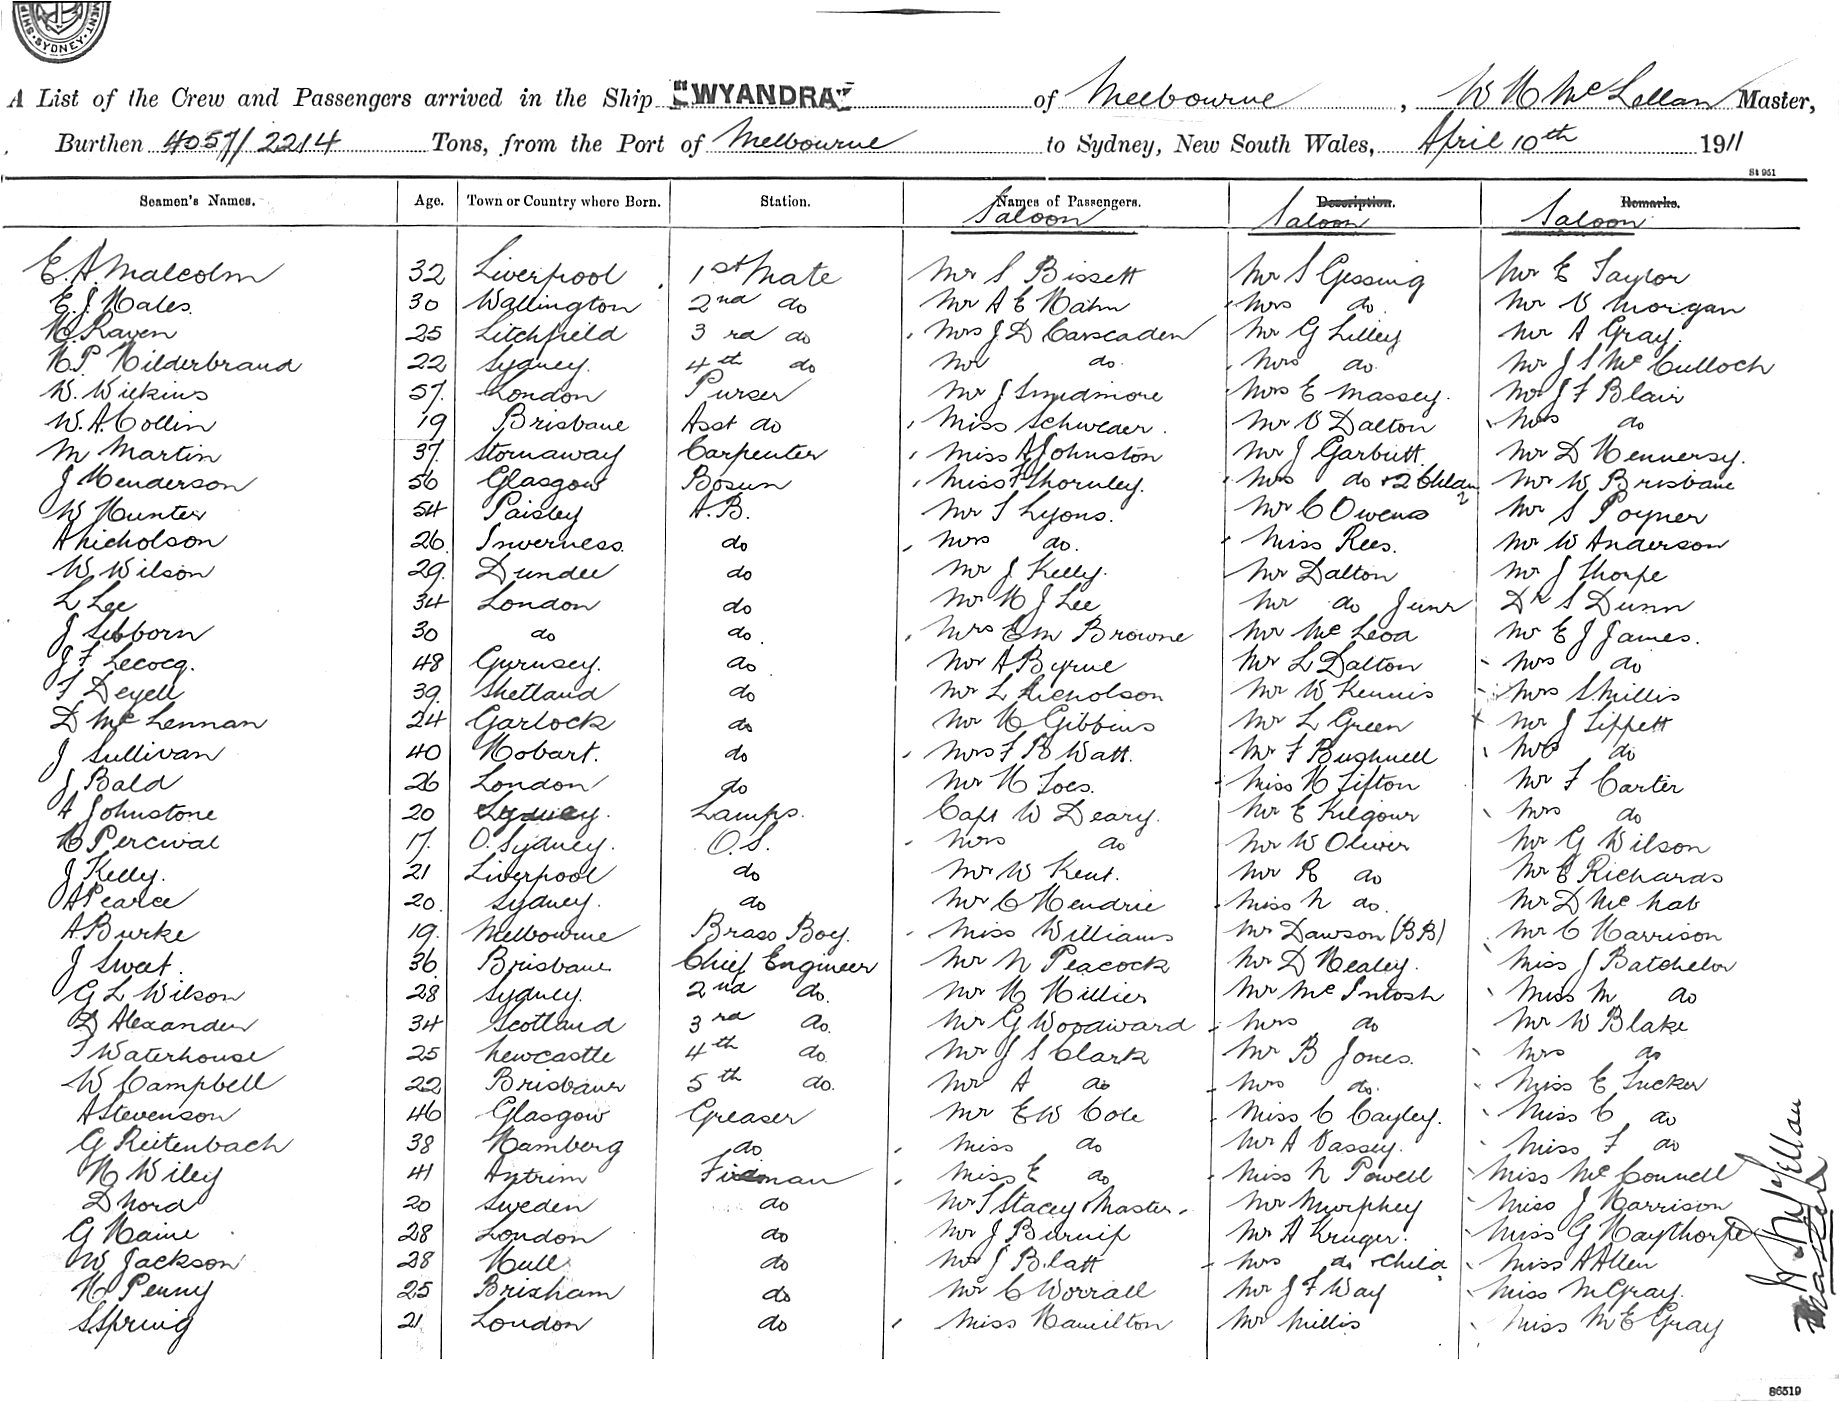 MENT · SYDNEY · SHIP
A List of the Crew and Passengers arrived in the Ship "WYANDRA" of Melbourne, W M McLellan Master,
Burthen 4057/2214 Tons, from the Port of Melbourne to Sydney, New South Wales, April 10th 1911
St 951
Seamen's Names. Age. Town or Country where Born. Station. Names of Passengers. Description. Remarks.
Saloon Saloon Saloon
E. A. Malcolm 32 Liverpool 1st Mate Mr S Bissett Mr S Gessing Mr E Taylor
E. J. Hales. 30 Wallington 2nd do Mr A E Hahn Mrs do. Mr V Morgan
H. Raven 25 Litchfield 3rd do Mrs J D Carscaden Mr G Lilley Mr A Gray.
H P. Hilderbrand 22 Sydney. 4th do Mr do. Mrs do. Mr J S McCulloch
W. Wilkins 57. London Purser Mr J Smidmore Mrs E Massey. Mr J F Blair
W. A. Collin 19 Brisbane Asst do Miss Schweaer. Mr V Dalton Mrs do
M Martin 37. Stornaway Carpenter Miss A Johnston Mr J Garbutt. Mr D Hennersy.
J Henderson 56 Glasgow Bosun Miss F Thornley. Mrs do + 2 Childn 2 Mr W Brisbane
W Hunter 54 Paisley A.B. Mr S Lyons. Mr C Owens Mr S Poyner
A Nicholson 26. Inverness. do Mrs do. Miss Rees. Mr W Anderson
W Wilson 29. Dundee do Mr J Kelly. Mr Dalton Mr J Thorpe
L Lee 34 London do Mr H J Lee Mr do Junr Dr S Dunn
J Sibborn 30 do do. Mrs E M Browne Mr McLeod Mr E J James.
J F Lecocq. 48 Gurnsey. do Mr A Byrne Mr L Dalton Mrs do
F Deyell 39. Shetland do Mr L Nicholson Mr W Kennis Mrs S Millis
D McLennan 24 Garlock do Mr H Gibbins Mr L Green Mr J Lippett
J Sullivan 40 Hobart. do Mrs F B Watt. Mr F Bushnell Mrs do
J Bald 26 London do Mr H Loes. Miss H Tifton Mr F Carter
A Johnstone 20 Sydney. Lamps. Capt W Deary. Mr E Kilgour Mrs do
H Percival 17. O. Sydney. O.S. Mrs do Mr W Oliver Mr G Wilson
J Kelly. 21 Liverpool do Mr W Kent. Mr R do Mr E Richards
A Pearce 20. Sydney. do Mr C Hendrie Miss N do. Mr D McNab
A Burke 19. Melbourne Brass Boy. Miss Williams Mr Dawson (BB) Mr C Harrison
J Sweet. 36 Brisbane Chief Engineer Mr N Peacock Mr D Healey. Miss J Batchelor
G L Wilson 28 Sydney. 2nd do. Mr H Hillier Mr McIntosh Miss M do
D Alexander 34 Scotland 3rd do. Mr G Woodward Mrs do Mr W Blake
T Waterhouse 25 Newcastle 4th do Mr J S Clark Mr B Jones. Mrs do
W Campbell 22 Brisbane 5th do. Mr A do Mrs do. Miss E Tucker
A Stevenson 46 Glasgow Greaser Mr E W Cole Miss C Cayley. Miss C do
G Reitenbach 38 Hamberg do Miss do Mr A Vassey. Miss F do
H Wiley 41 Antrim Fireman Miss E do Miss N Powell Miss McConnell
D Nord 20 Sweden do Mr S Stacey + Master. Mr Murphey Miss J Harrison
G Haine 28 London do Mr J Burnip Mr A Kruger. Miss G Haythorpe
W Jackson 28 Hull do Mr J Blatt Mrs do + Child Miss A Allen
H Penny 25 Brixham do Mr C Worrall Mr J F Way Miss M Gray.
S Spring 21 London do Miss Hamilton Mr Millis Miss M E Gray
W M McLellan
Master
86519